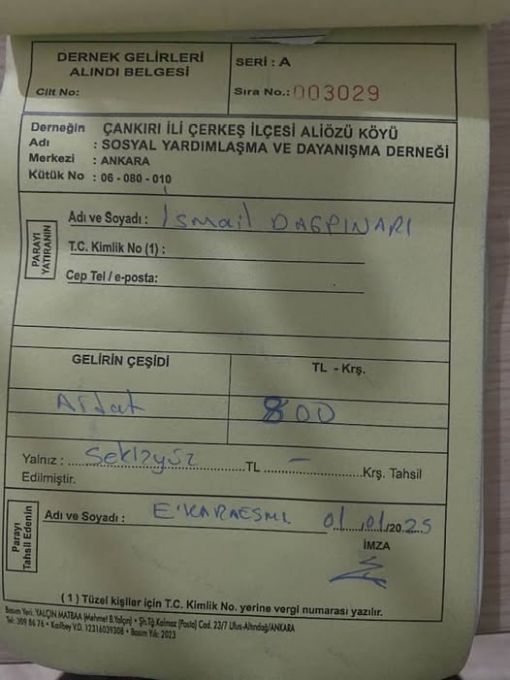 DERNEK GELİRLERİ
ALINDI BELGESİ
Cilt No:
SERİ : A
Sıra No.: 003029
Derneğin Adı : ÇANKIRI İLİ ÇERKEŞ İLÇESİ ALİÖZÜ KÖYÜ
SOSYAL YARDIMLAŞMA VE DAYANIŞMA DERNEĞİ
Merkezi : ANKARA
Kütük No : 06 - 080 - 010
PARAYI YATIRANIN
Adı ve Soyadı : İsmail DAGPINARI
T.C. Kimlik No (1) :
Cep Tel / e-posta:
GELİRİN ÇEŞİDİ
TL - Krş.
Aidat
800
Yalnız : Sekizyüz TL – Krş. Tahsil
Edilmiştir.
Parayı Tahsil Edenin
Adı ve Soyadı : E'KARAESML 01/01/2025
İMZA
(1) Tüzel kişiler için T.C. Kimlik No. yerine vergi numarası yazılır.
Basım Yeri: YALÇIN MATBAA (Mehmet B.Yalçın) • Şh.Tğ.Kalmaz (Posta) Cad. 23/7 Ulus-Altındağ/ANKARA
Tel: 309 86 76 • Kızılbey V.D. 12316039308 • Basım Yılı: 2023